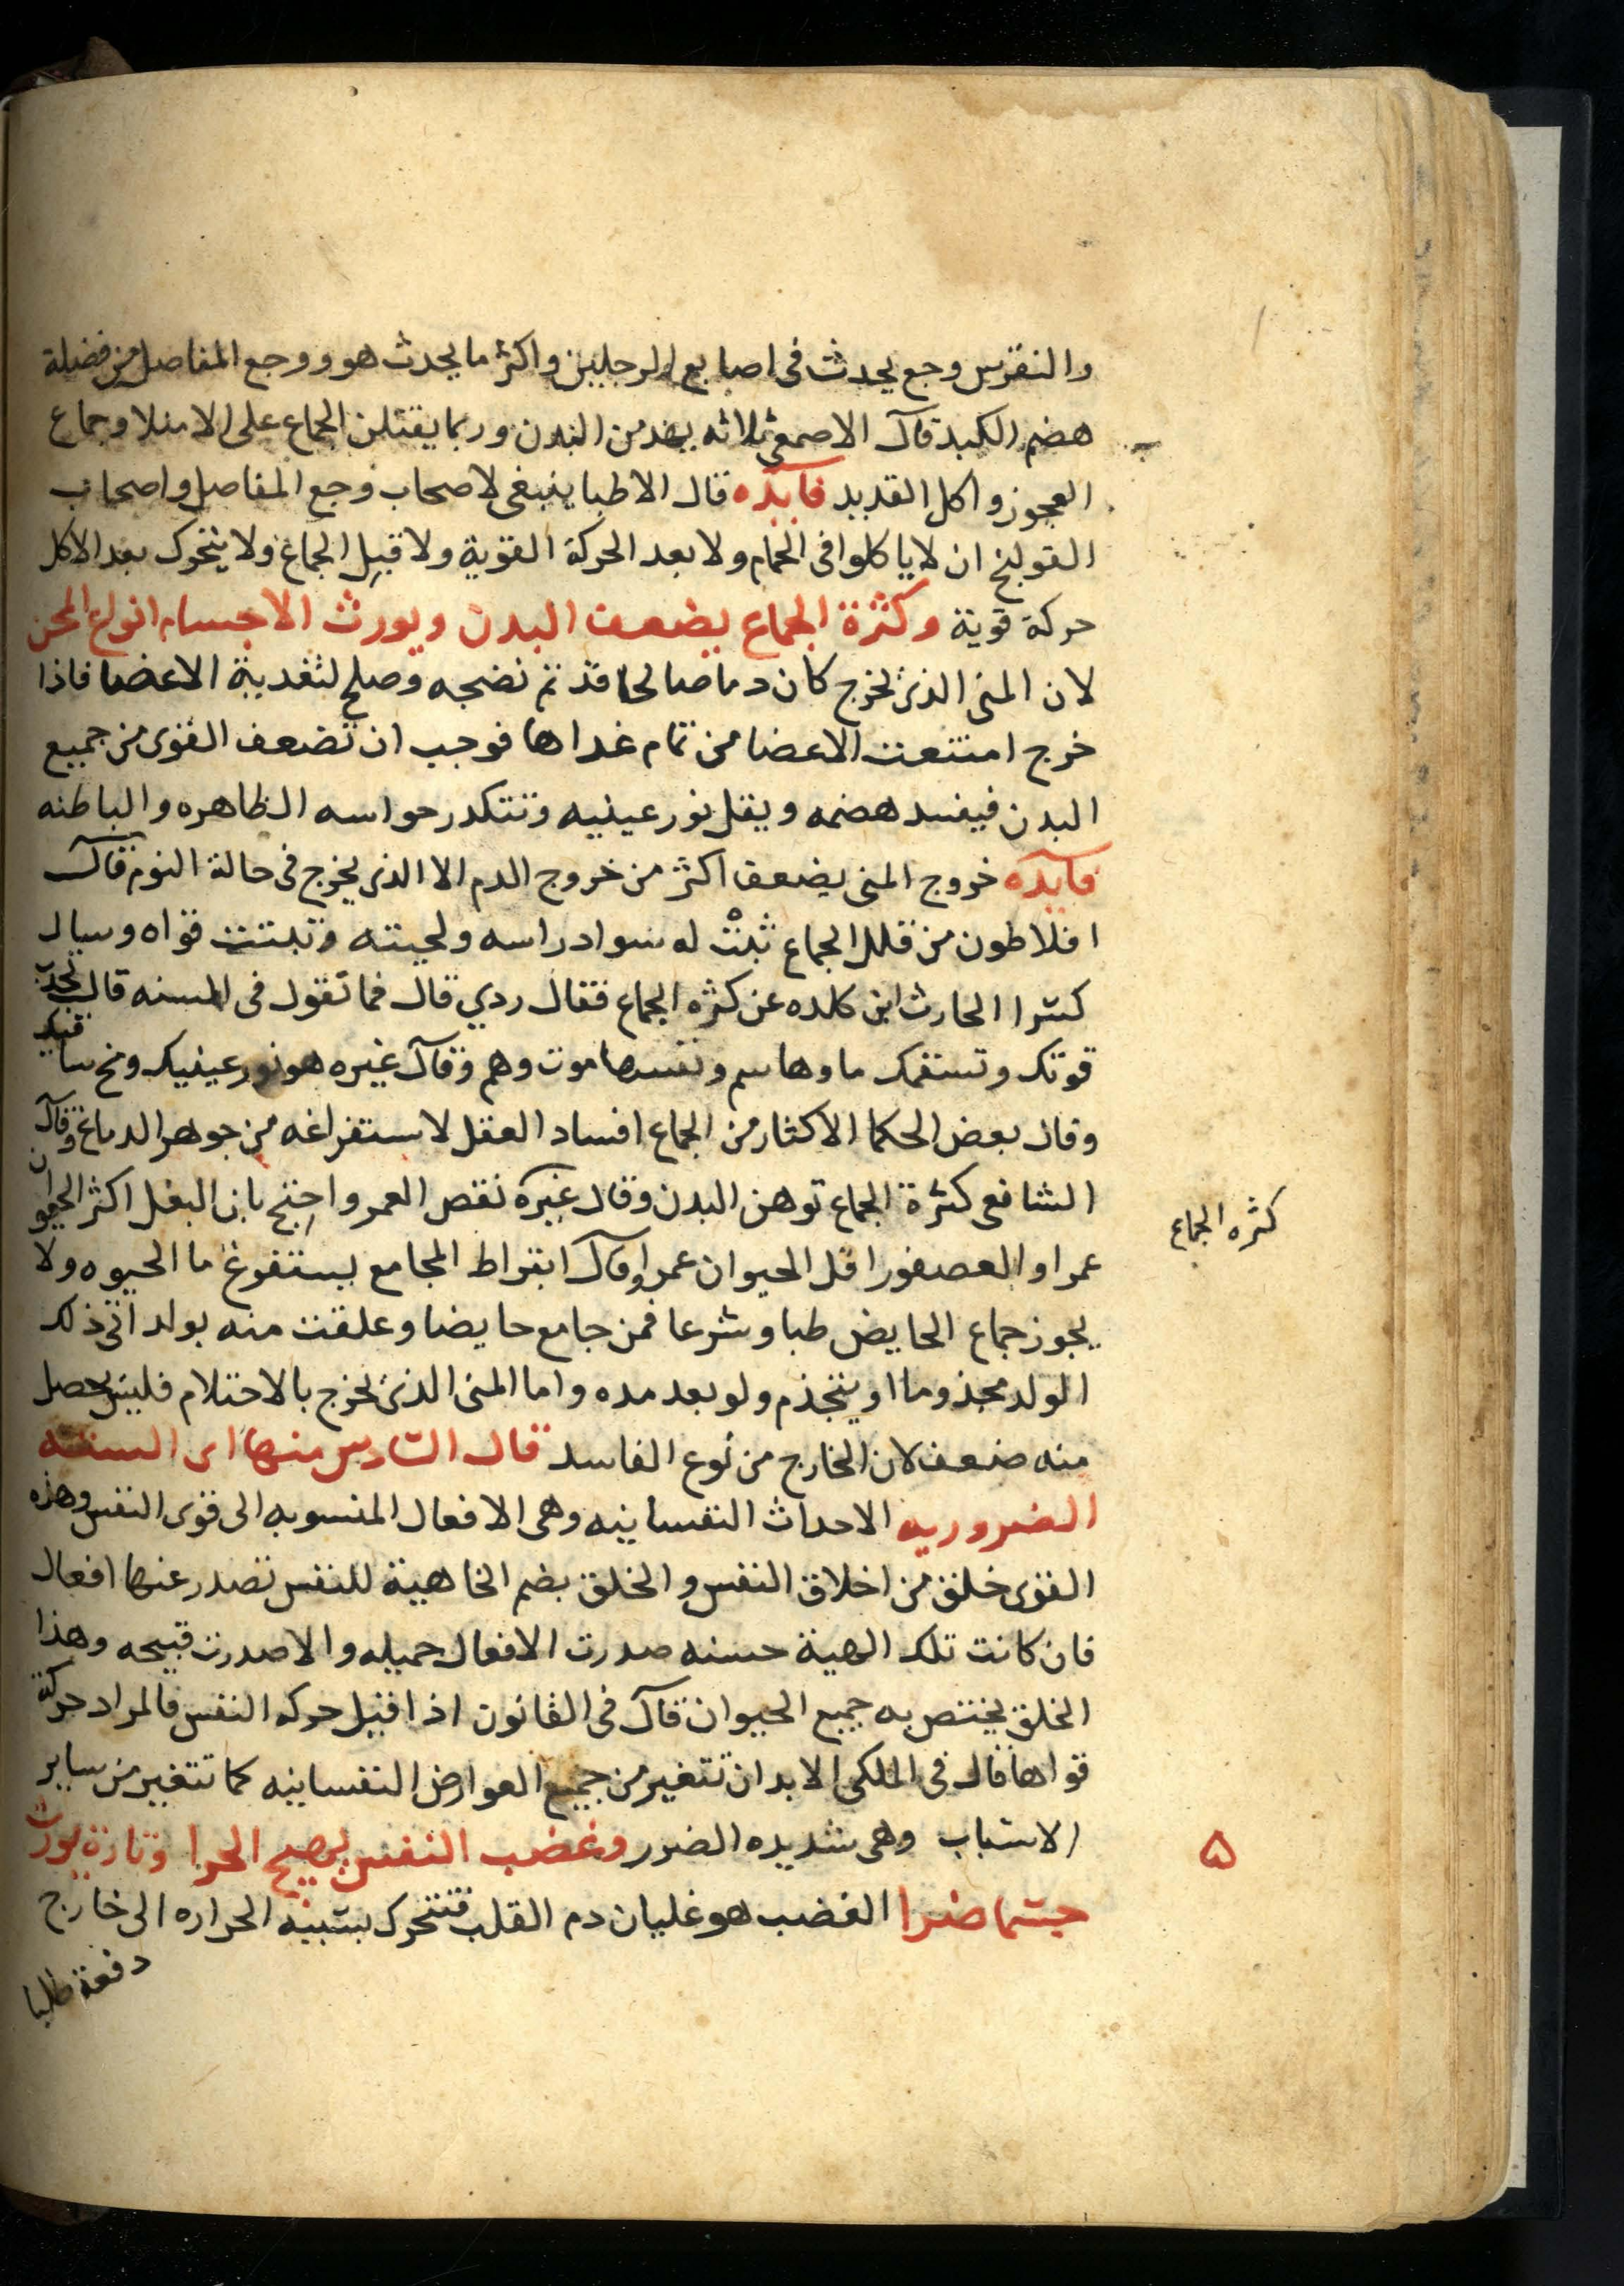 والنقرس وجع يحدث فى اصابع الرجلين واكثر ما يحدث هو ووجع المفاصل من فضلة
هضم الكبد قال الاصمعى ثلاثه يهدمن البدن وربما يقتلن الجماع على الامتلا وجماع
العجوز واكل القديد فايده قال الاطبا ينبغى لاصحاب وجع المفاصل واصحاب
القولنج ان لا ياكلوا فى الحمام ولا بعد الحركة القوية ولا قبل الجماع ولا يتحرك بعد الاكل
حركة قوية وكثرة الجماع يضعف البدن ويورث الاجسام انواع المحن
لان المنى الذى يخرج كان دما صالحا قد تم نضجه وصلح لتغدية الاعضا فاذا
خرج امتنعت الاعضا من تمام غداها فوجب ان تضعف القوى من جميع
البدن فيفسد هضمه ويقل نور عينيه وتتكدر حواسه الظاهره والباطنه
فايده خروج المنى يضعف اكثر من خروج الدم الا الذى يخرج فى حالة النوم قال
افلاطون من قلل الجماع ثبت له سواد راسه ولحيته وتبتت قواه وسال
كسرا الحارث ابن كلده عن كثره الجماع فقال ردي قال فما تقول فى المسنه قال تجذب
قوتك وتسقمك ماوها سم ونفسها موت وهم وقال غيره هو نور عينيك ومخ ساقيك
وقال بعض الحكما الاكثار من الجماع افساد العقل لاستفراغه من جوهر الدماغ وقال
الشافعى كثرة الجماع توهن البدن وقال غيره نقص العمر واحتج بان البغل اكثر الحيوان
عمرا والعصفور اقل الحيوان عمرا وقال ابقراط المجامع يستفرغ ما الحيوه ولا
يجوز جماع الحايض طبا وشرعا فمن جامع حايضا وعلقت منه بولد اتى ذلك
الولد مجذوما او يتجذم ولو بعد مده واما المنى الذى يخرج بالاحتلام فليس يحصل
منه ضعف لان الخارج من نوع الفاسد قال السادس منها اى الستة
الضروريه الاحداث النفسانيه وهى الافعال المنسوبه الى قوى النفس وهذه
القوى خلق من اخلاق النفس والخلق بضم الخا هية للنفس تصدر عنها افعال
فان كانت تلك الهية حسنه صدرت الافعال جميله والا صدرت قبيحه وهذا
الخلق يختص به جميع الحيوان قال فى القانون اذا قيل حركه النفس فالمراد حركة
قواها قال فى الملكى الابدان تتغير من جميع العوارض النفسانيه كما تتغير من ساير
الاسباب وهى شديده الضرر وغضب النفس يهيج الحرا وتارة يورث
جسما ضرا الغضب هو غليان دم القلب فتتحرك بسببه الحراره الى خارج
دفعة طلبا
كثره الجماع